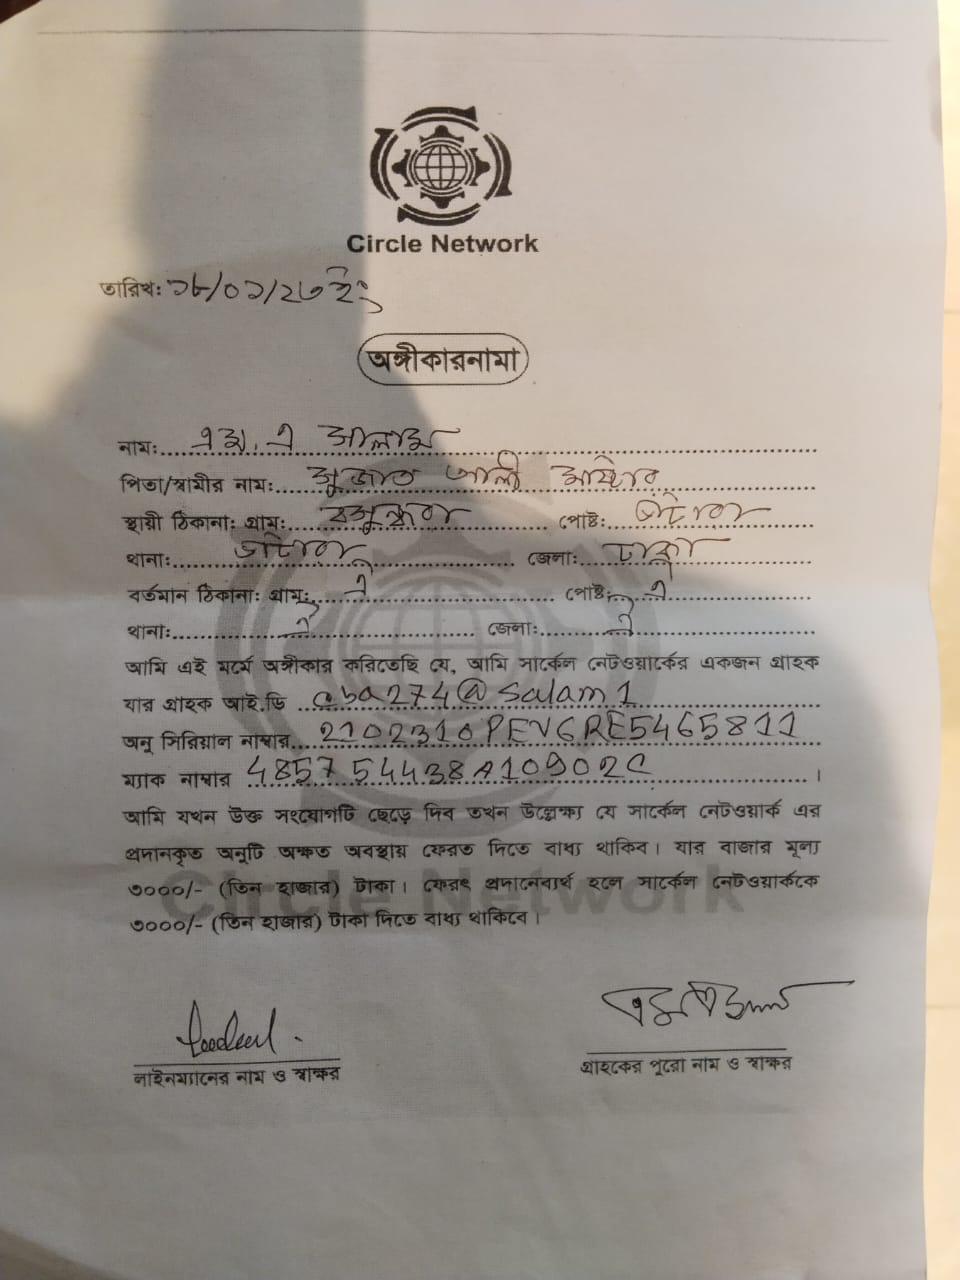 Circle Network
তারিখ: ১৮/০১/২৩ ইং
অঙ্গীকারনামা
নাম: এম. এ আলাম
পিতা/স্বামীর নাম: সুজাত আলী
স্থায়ী ঠিকানা: গ্রাম: পোষ্ট:
থানা: জেলা: ঢাকা
বর্তমান ঠিকানা: গ্রাম: ঐ পোষ্ট: ঐ
থানা: ঐ জেলা: ঐ
আমি এই মর্মে অঙ্গীকার করিতেছি যে, আমি সার্কেল নেটওয়ার্কের একজন গ্রাহক
যার গ্রাহক আই.ডি cba274@salam1
অনু সিরিয়াল নাম্বার 2102310PEVGRE5465811
ম্যাক নাম্বার 485754438A10902C ।
আমি যখন উক্ত সংযোগটি ছেড়ে দিব তখন উল্লেক্ষ্য যে সার্কেল নেটওয়ার্ক এর
প্রদানকৃত অনুটি অক্ষত অবস্থায় ফেরত দিতে বাধ্য থাকিব। যার বাজার মূল্য
৩০০০/- (তিন হাজার) টাকা। ফেরৎ প্রদানেব্যর্থ হলে সার্কেল নেটওয়ার্ককে
৩০০০/- (তিন হাজার) টাকা দিতে বাধ্য থাকিবে।
Circle Network
লাইনম্যানের নাম ও স্বাক্ষর
গ্রাহকের পুরো নাম ও স্বাক্ষর